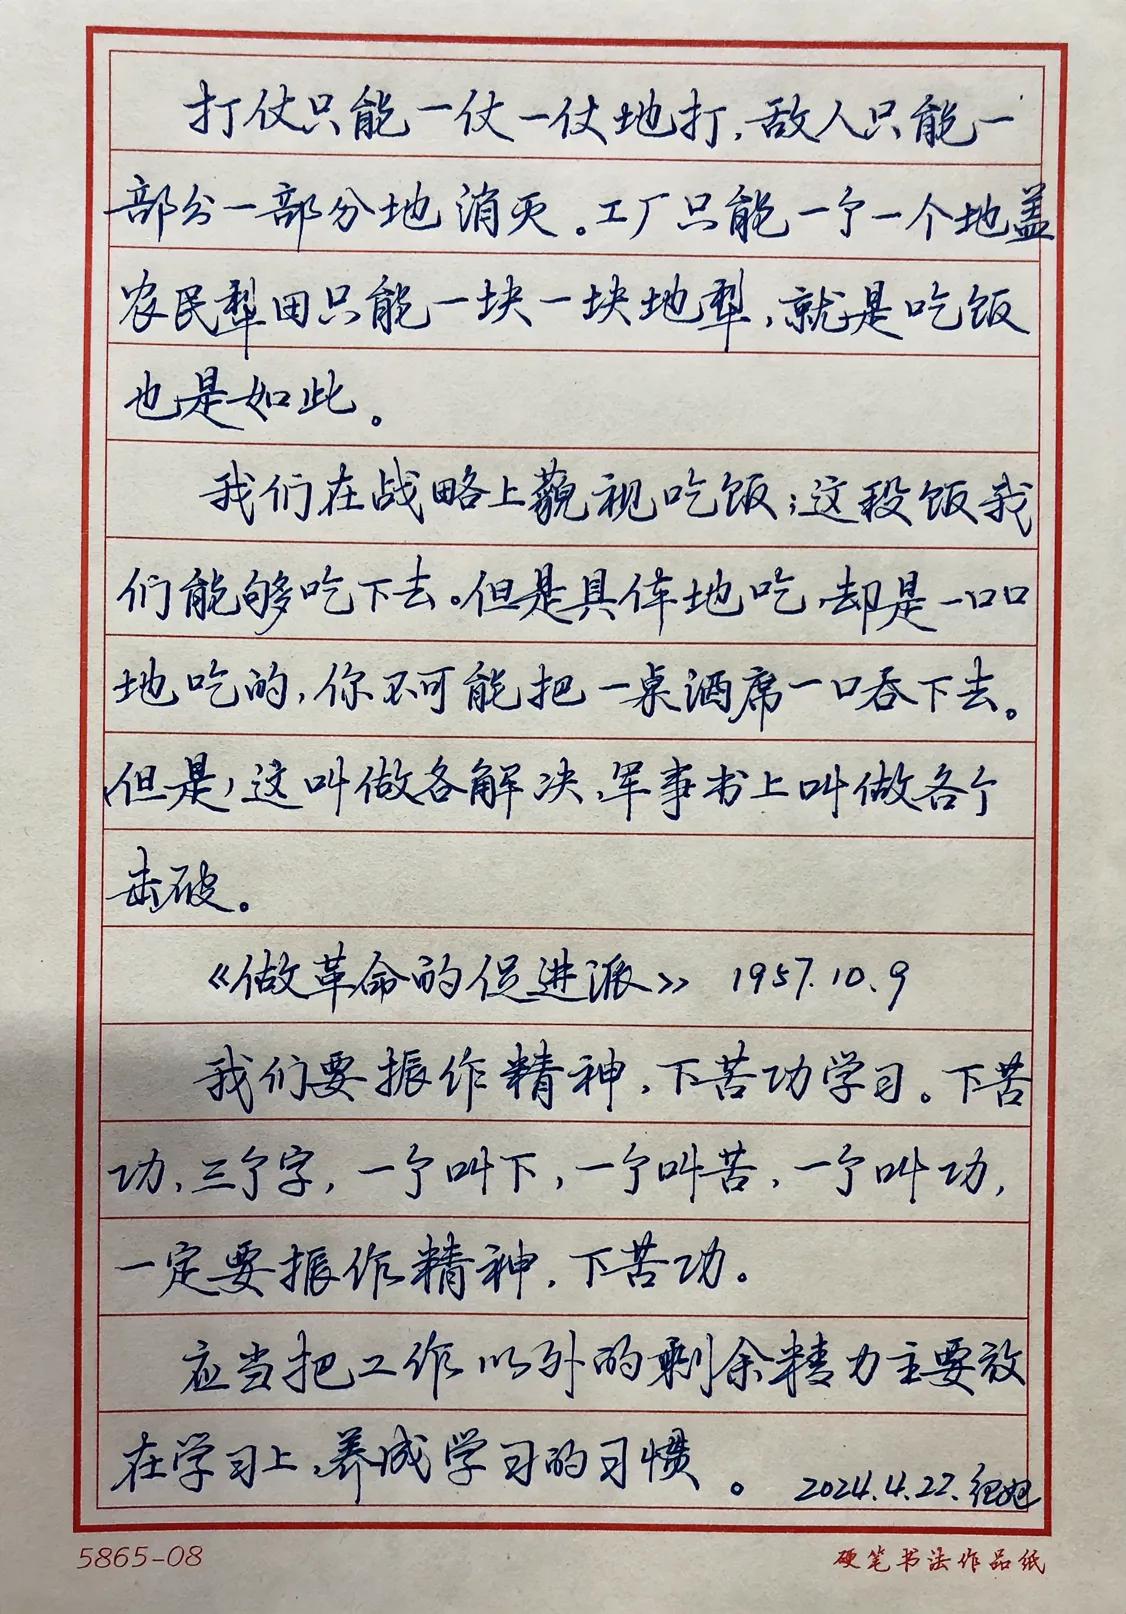 打仗只能一仗一仗地打,敌人只能一
部分一部分地消灭。工厂只能一个一个地盖
农民犁田只能一块一块地犁,就是吃饭
也是如此。
我们在战略上藐视吃饭;这段饭我
们能够吃下去。但是具体地吃,却是一口口
地吃的,你不可能把一桌酒席一口吞下去。
但是,这叫做各解决,军事书上叫做各个
击破。
《做革命的促进派》 1957.10.9
我们要振作精神,下苦功学习。下苦
功,三个字,一个叫下,一个叫苦,一个叫功,
一定要振作精神,下苦功。
应当把工作以外的剩余精力主要放
在学习上,养成学习的习惯。 2024.4.22.
5865-08
硬笔书法作品纸